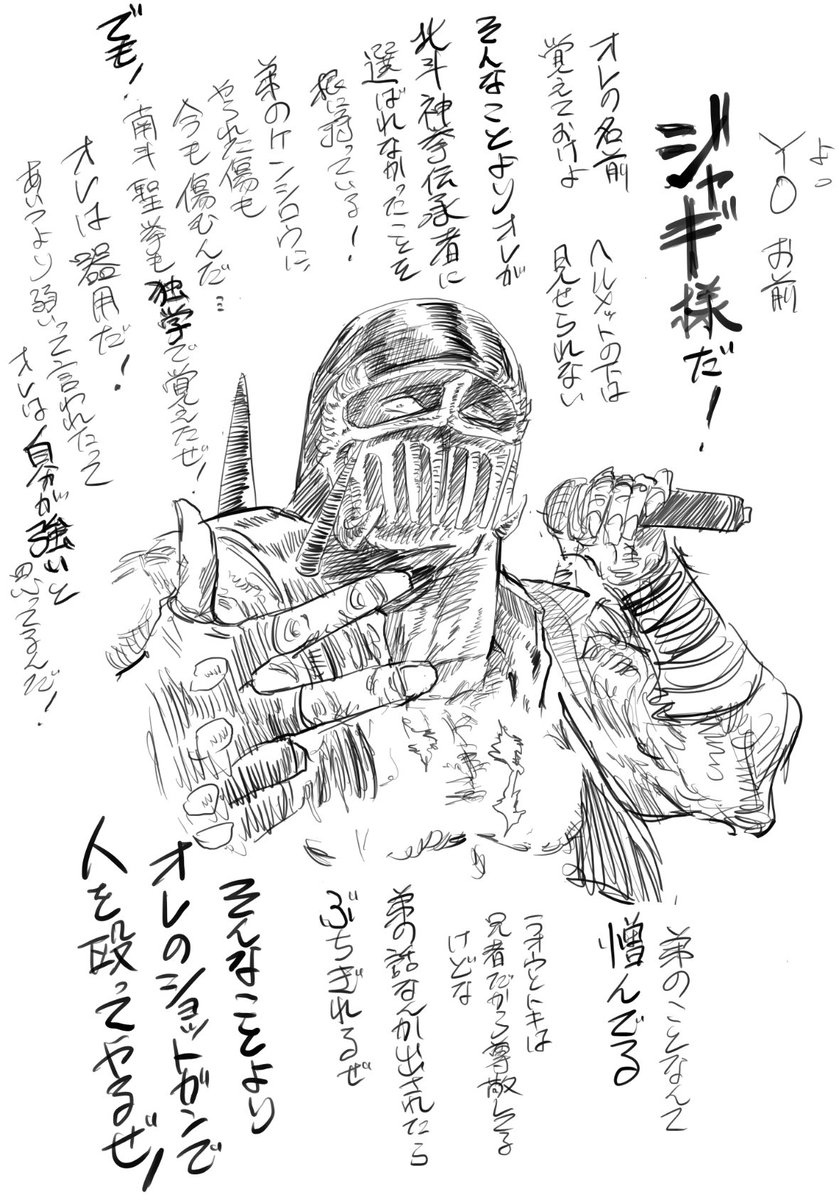 よっ
YO お前
ジャギ様だ!
オレの名前
覚えておけよ
ヘルメットの下は
見せられない
そんなことよりオレが
北斗神拳伝承者に
選ばれなかったことを
根に持っている!
弟のケンシロウに、
やられた傷も
今も傷むんだ…
でも!
南斗聖拳も独学で覚えたぜ!
オレは器用だ!
あいつより弱いって言われたって
オレは自分が強いと
思ってるんだ!
弟のことなんて
憎んでる
ラオウとトキは
兄者だから尊敬してる
けどな
弟の話なんか出されたら
ぶちぎれるぜ
そんなことより
オレのショットガンで
人を殴ってやるぜ!